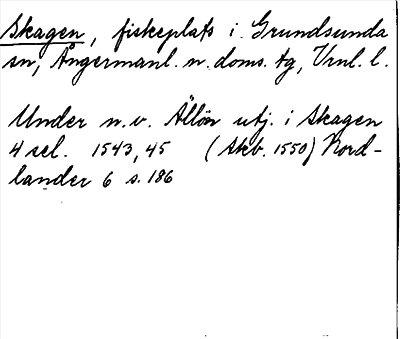 Skagen, fiskeplats i Grundsunda
sn, Ångermanl. n. doms. tg, Vrnl. l.
Under n. v. Ällön utj. i Skagen
4 sel. 1543, 45 (Skb. 1550) Nord-
lander 6 s. 186